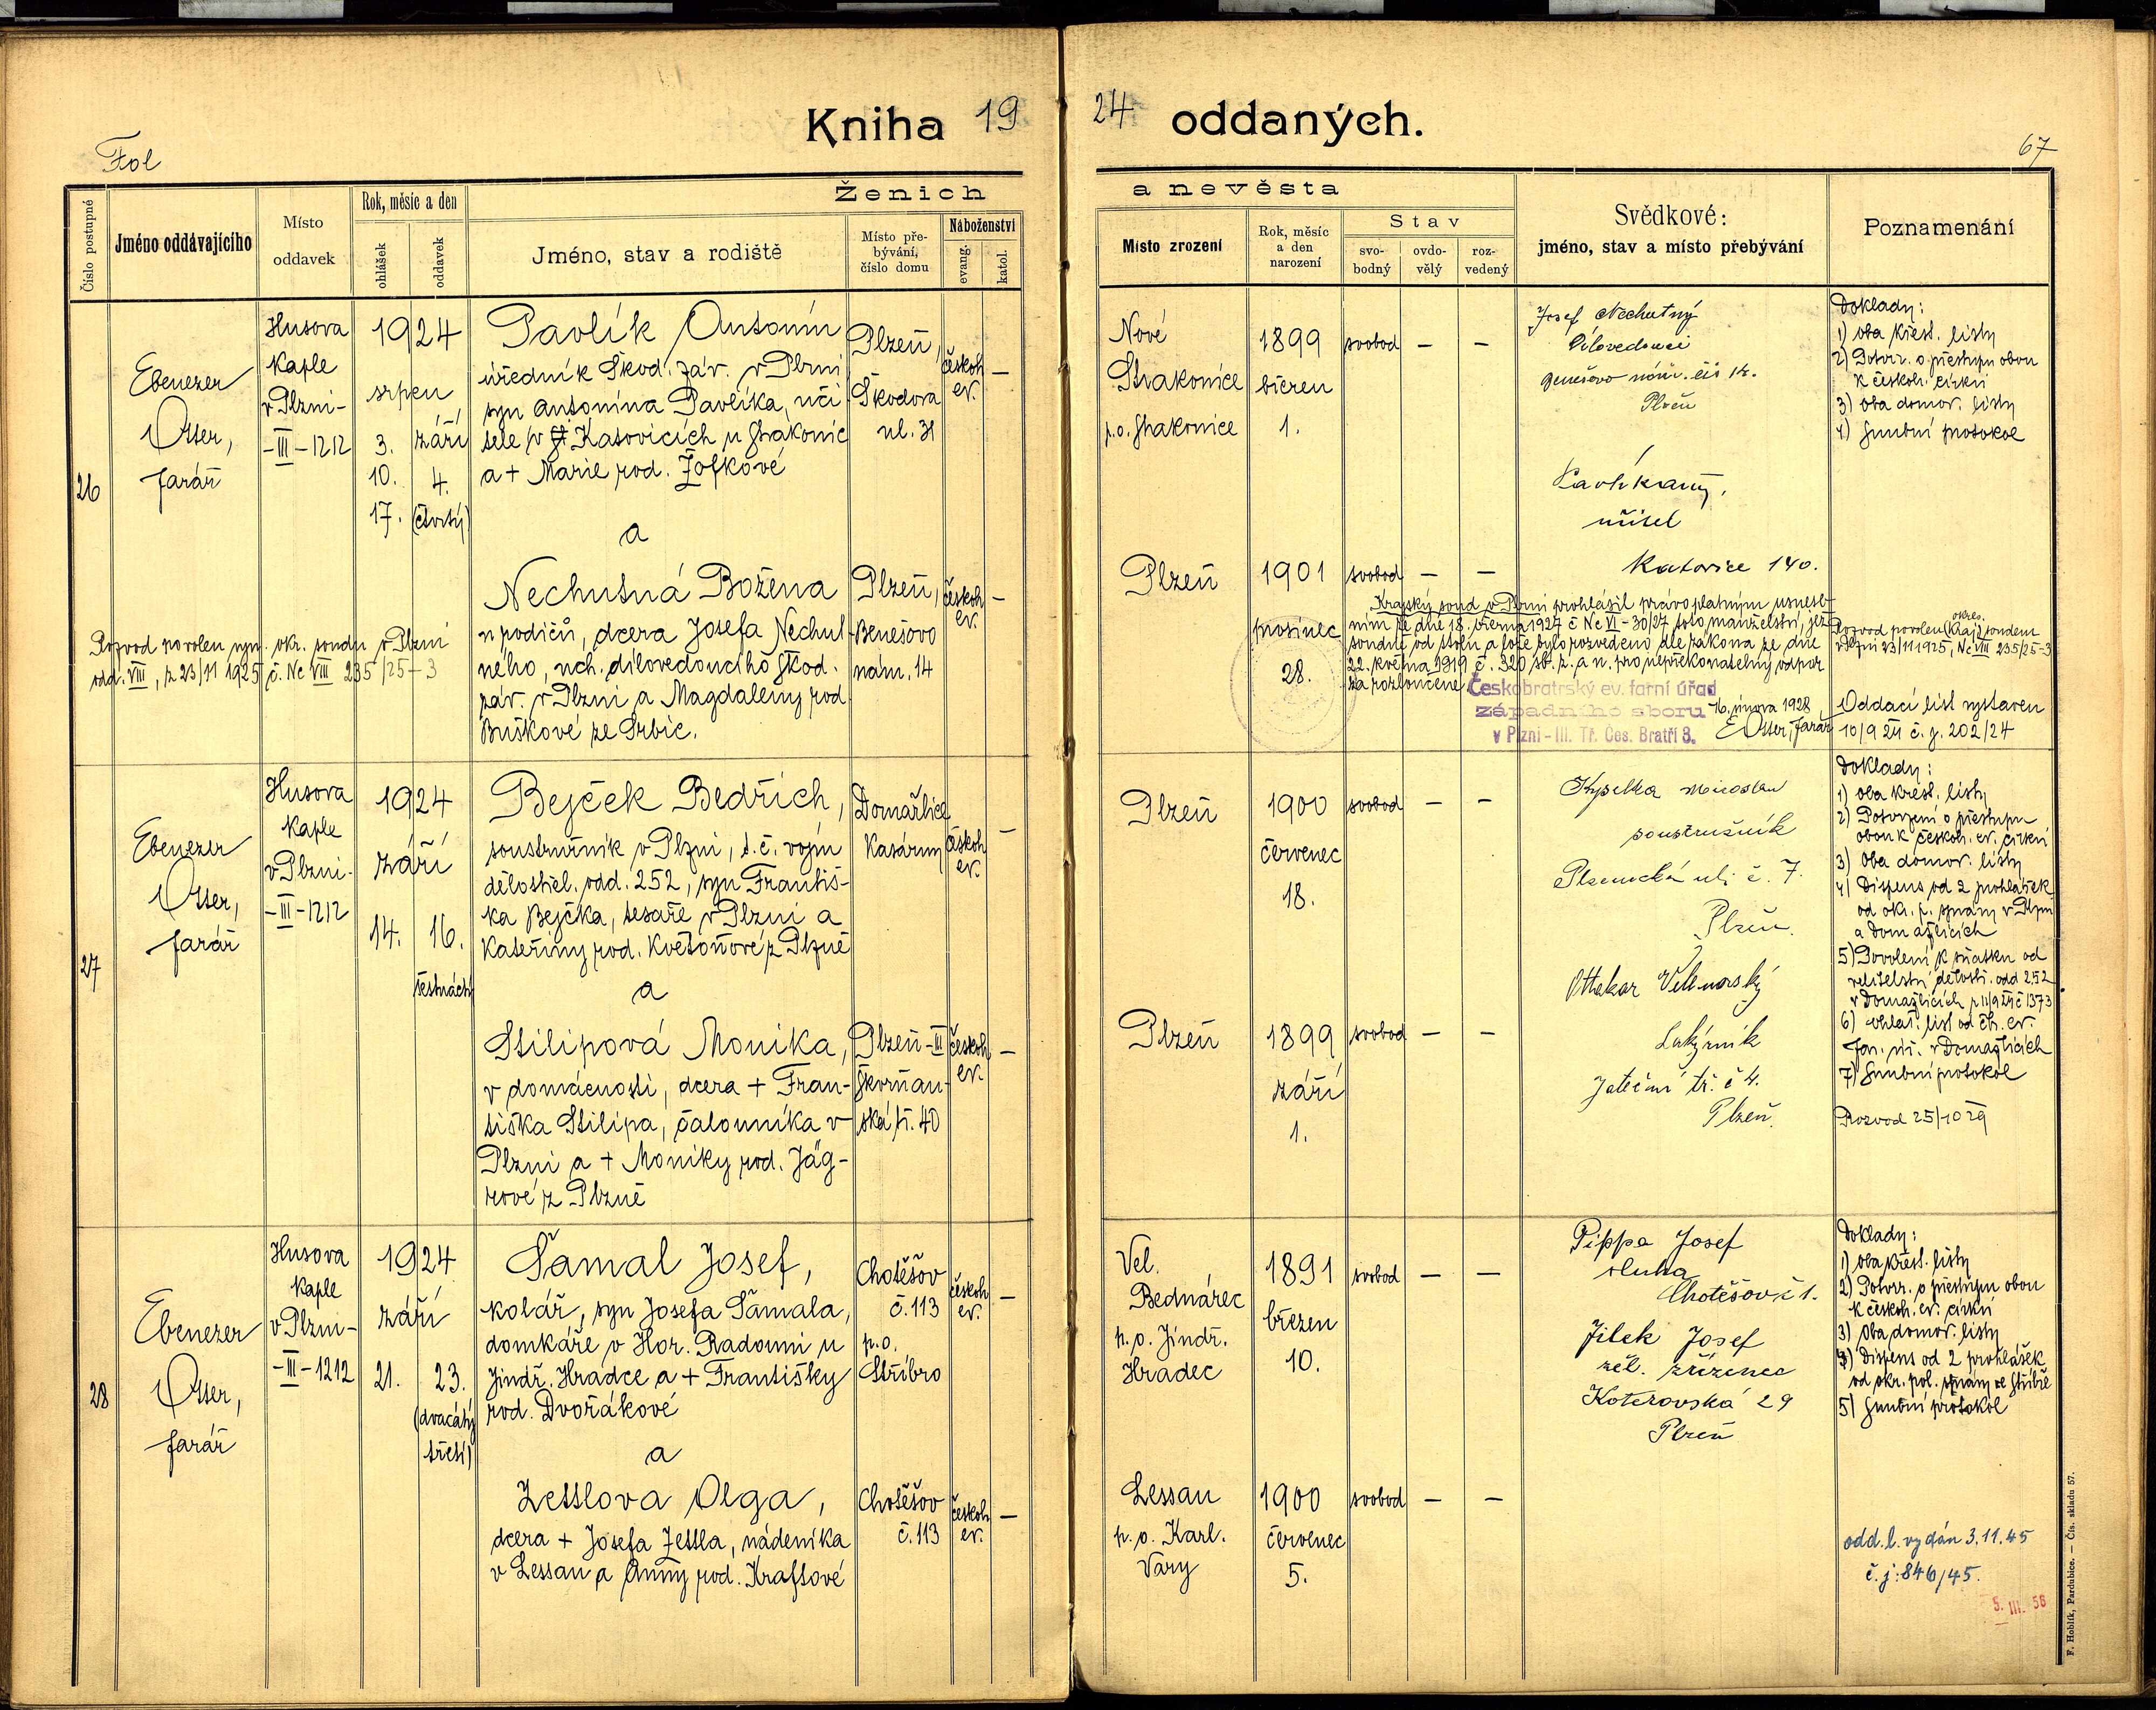 Kniha 1924 oddaných.
Fol
67
Číslo postupné
Jméno oddávajícího
Místo
oddavek
Rok, měsíc a den
ohlášek
oddavek
Ženich
a nevěsta
Jméno, stav a rodiště
Místo pře-
bývání,
číslo domu
Náboženství
evang.
katol.
Místo zrození
Rok, měsíc
a den
narození
Stav
svo-
bodný
ovdo-
vělý
roz-
vedený
Svědkové:
jméno, stav a místo přebývání
Poznamenání
26
Ebenezer
Otter,
farář
Husova
kaple
v Plzni-
-III-1212
1924
srpen
3. září
10. 4.
17. (čtvrtý)
Pavlík Antonín
úředník Škod. záv. v Plzni
syn Antonína Pavlíka, uči-
tele v Katovicích u Strakonic
a + Marie rod. Žofkové
Plzeň,
Škodova
ul. 31
českob
ev.
—
a
Nechutná Božena
u rodičů, dcera Josefa Nechut-
ného, úch. dílovedoucího Škod.
záv. v Plzni a Magdaleny rod.
Buškové ze Srbic.
Plzeň,
Benešovo
nám. 14
českob
ev.
—
Rozvod povolen usn. okr. soudu v Plzni
odd. VIII, z 23/11 1925 č. Nc VIII 235/25-3
Nové
Strakonice
p.o. Strakonice
1899
březen
1.
svobod — —
Josef Nechutný
Dílovedoucí
Benešovo nám. čís 14.
Plzeň
učitel
Katovice 140.
Doklady:
1) oba křest. listy
2) Potvrz. o přestupu obou
k českob. církvi
3) oba domov. listy
4) Snubní protokol
Plzeň
1901
prosinec
28.
svobod — —
Krajský soud v Plzni prohlásil právoplatným usnese-
ním ze dne 18. března 1927 č Nc VI-30/27 toto manželství, jež
soudně od stolu a lože bylo rozvedeno dle zákona ze dne
22. května 1919 č. 320 sb. z. a n. pro nepřekonatelný odpor
za rozloučené.
Českobratrský ev. farní úřad
západního sboru
v Plzni-III. Tř. Čes. Bratří 3.
16. února 1928
E Otter, farář
okres.
Rozvod povolen (Kraj.) soudem
v Plzni 23/11 1925, Nc VIII 235/25-3
Oddací list vystaven
10/9 24 č. j. 202/24
27
Ebenezer
Otter,
farář
Husova
kaple
v Plzni-
-III-1212
1924
září
14. 16.
šestnáctý
Bejček Bedřich,
soustružník v Plzni, t.č. vojín
dělostřel. odd. 252, syn Františ-
ka Bejčka, tesaře v Plzni a
Kateřiny rod. Květoňové z Plzně
Domažlice
Kasárny
českob
ev.
—
a
Stilipová Monika,
v domácnosti, dcera + Fran-
tiška Stilipa, čalouníka v
Plzni a + Moniky rod. Jäg-
rové z Plzně
Plzeň-III
Škvrňan-
ská tř. 40
českob
ev.
—
Plzeň
1900
červenec
18.
svobod — —
Kyselka Miroslav
soustružník
Plzeň.
Doklady:
1) oba křest. listy
2) Potvrzení o přestupu
obou k českob. ev. církvi
3) Oba domov. listy
4) Dispens od 2 prohlášek
od okr. p. správy v Plzni
a Domažlicích
5) Povolení k sňatku od
velitelství dělostř. odd 252
v Domažlicích z 11/9 24 č 1373
6) ohlaš. list od čb. ev.
far. úř. v Domažlicích
7) Snubní protokol
Rozvod 25/10 29
Plzeň
1899
září
1.
svobod — —
Ottokar Velenovský
Lakýrník
Jateční tř. č 4.
Plzeň.
28
Ebenezer
Otter,
farář
Husova
kaple
v Plzni-
-III-1212
1924
září
21. 23.
(dvacátý
třetí)
Šamal Josef,
kolář, syn Josefa Šamala,
domkáře v Hor. Radouni u
Jindř. Hradce a + Františky
rod. Dvořákové
Chotěšov
č. 113
p.o.
Stříbro
českob
ev.
—
a
Zettlova Olga,
dcera + Josefa Zettla, nádeníka
v Lessau a Anny rod. Kraftové
Chotěšov
č. 113
českob
ev.
—
Vel.
Bednárec
p.o. Jindř.
Hradec
1891
březen
10.
svobod — —
Pippa Josef
sluha
Chotěšov č 1.
Jílek Josef
žel. zřízenec
Koterovská 29
Plzeň
Doklady:
1) Oba křest. listy
2) Potvrz. o přestupu obou
k českob. ev. církvi
3) Oba domov. listy
4) Dispens od 2 prohlášek
od okr. pol. správy ve Stříbře
5) Snubní protokol
Lessau
p.o. Karl.
Vary
1900
červenec
5.
svobod — —
odd. l. vydán 3.11.45
č.j: 846/45.
5. III. 56
F. Hoblík, Pardubice. — Čís. skladu 57.